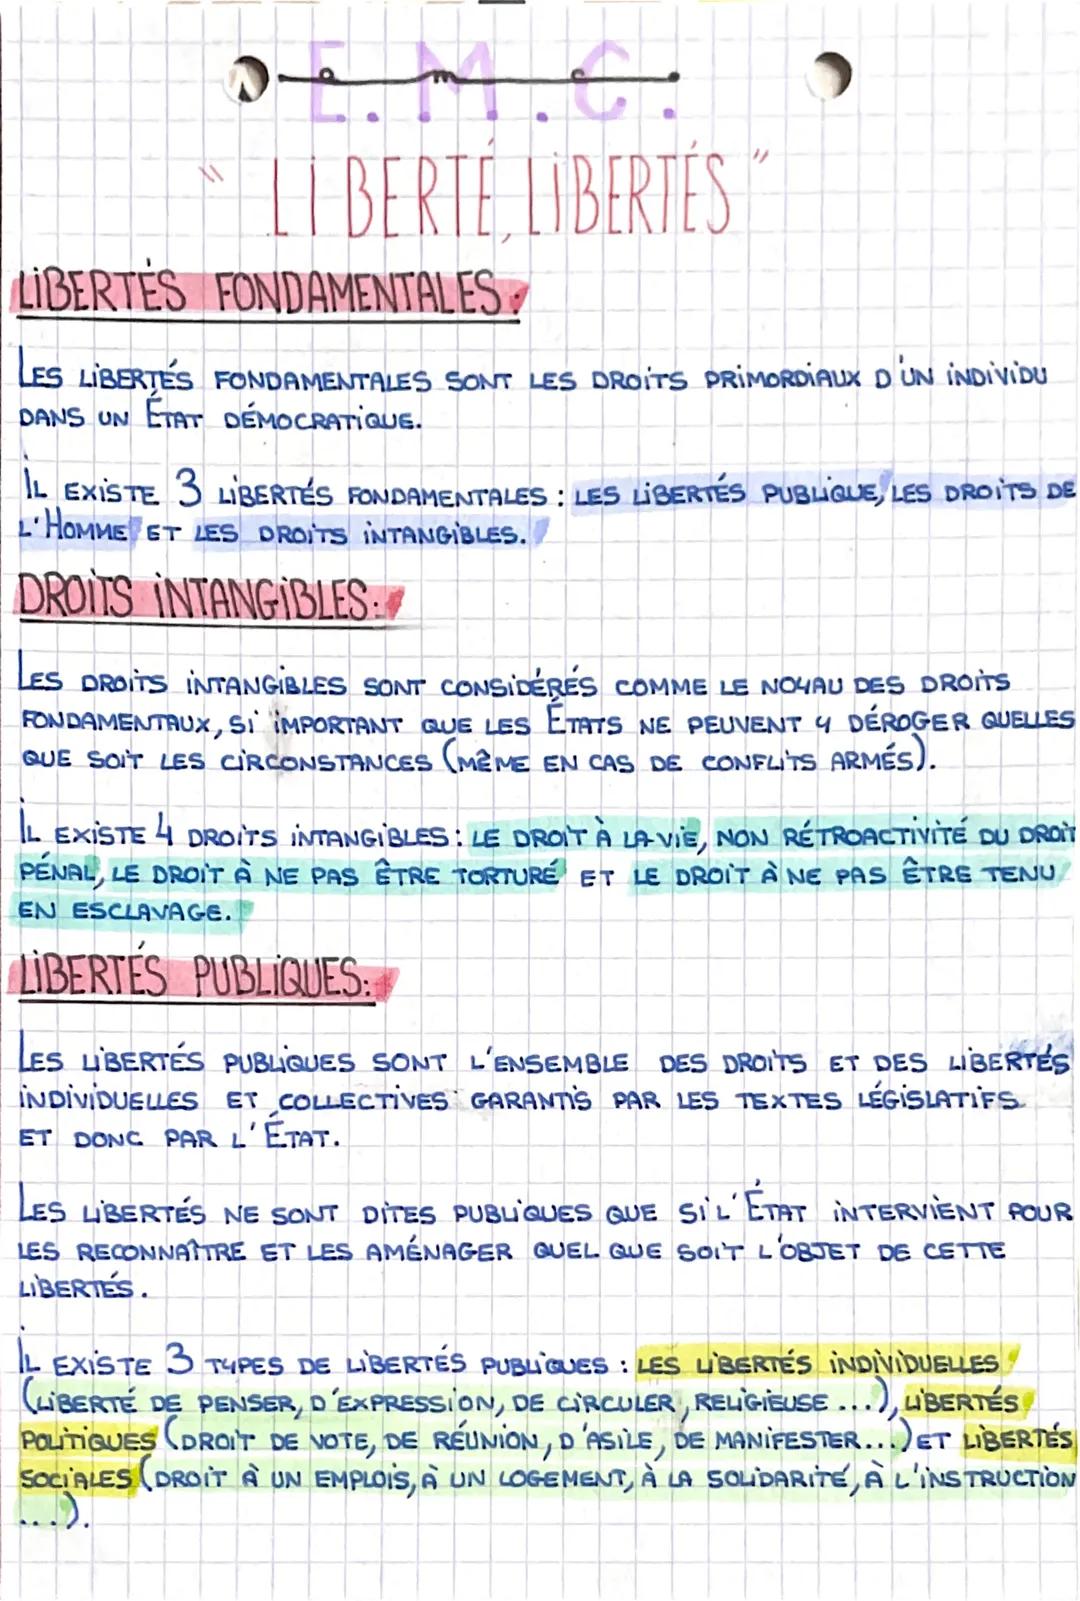 E.M.C.
emc
"LIBERTÉ, LIBERTÉS"
LIBERTÉS FONDAMENTALES :
LES LIBERTÉS FONDAMENTALES SONT LES DROITS PRIMORDIAUX D'UN INDIVIDU
DANS UN ÉTAT DÉMOCRATIQUE.
IL EXISTE 3 LIBERTÉS FONDAMENTALES : LES LIBERTÉS PUBLIQUE, LES DROITS DE
L'HOMME ET LES DROITS INTANGIBLES.
DROITS INTANGIBLES :
LES DROITS INTANGIBLES SONT CONSIDÉRÉS COMME LE NOYAU DES DROITS
FONDAMENTAUX, SI IMPORTANT QUE LES ÉTATS NE PEUVENT Y DÉROGER QUELLES
QUE SOIT LES CIRCONSTANCES (MÊME EN CAS DE CONFLITS ARMÉS).
IL EXISTE 4 DROITS INTANGIBLES : LE DROIT À LA VIE, NON RÉTROACTIVITÉ DU DROIT
PÉNAL, LE DROIT À NE PAS ÊTRE TORTURÉ ET LE DROIT À NE PAS ÊTRE TENU
EN ESCLAVAGE.
LIBERTÉS PUBLIQUES :
LES LIBERTÉS PUBLIQUES SONT L'ENSEMBLE DES DROITS ET DES LIBERTÉS
INDIVIDUELLES ET COLLECTIVES GARANTIS PAR LES TEXTES LÉGISLATIFS
ET DONC PAR L'ÉTAT.
LES LIBERTÉS NE SONT DITES PUBLIQUES QUE SI L'ÉTAT INTERVIENT POUR
LES RECONNAÎTRE ET LES AMÉNAGER QUEL QUE SOIT L'OBJET DE CETTE
LIBERTÉS.
IL EXISTE 3 TYPES DE LIBERTÉS PUBLIQUES : LES LIBERTÉS INDIVIDUELLES
(LIBERTÉ DE PENSER, D'EXPRESSION, DE CIRCULER, RELIGIEUSE ...), LIBERTÉS
POLITIQUES (DROIT DE VOTE, DE RÉUNION, D'ASILE, DE MANIFESTER...) ET LIBERTÉS
SOCIALES (DROIT À UN EMPLOIS, À UN LOGEMENT, À LA SOLIDARITÉ, À L'INSTRUCTION
...).